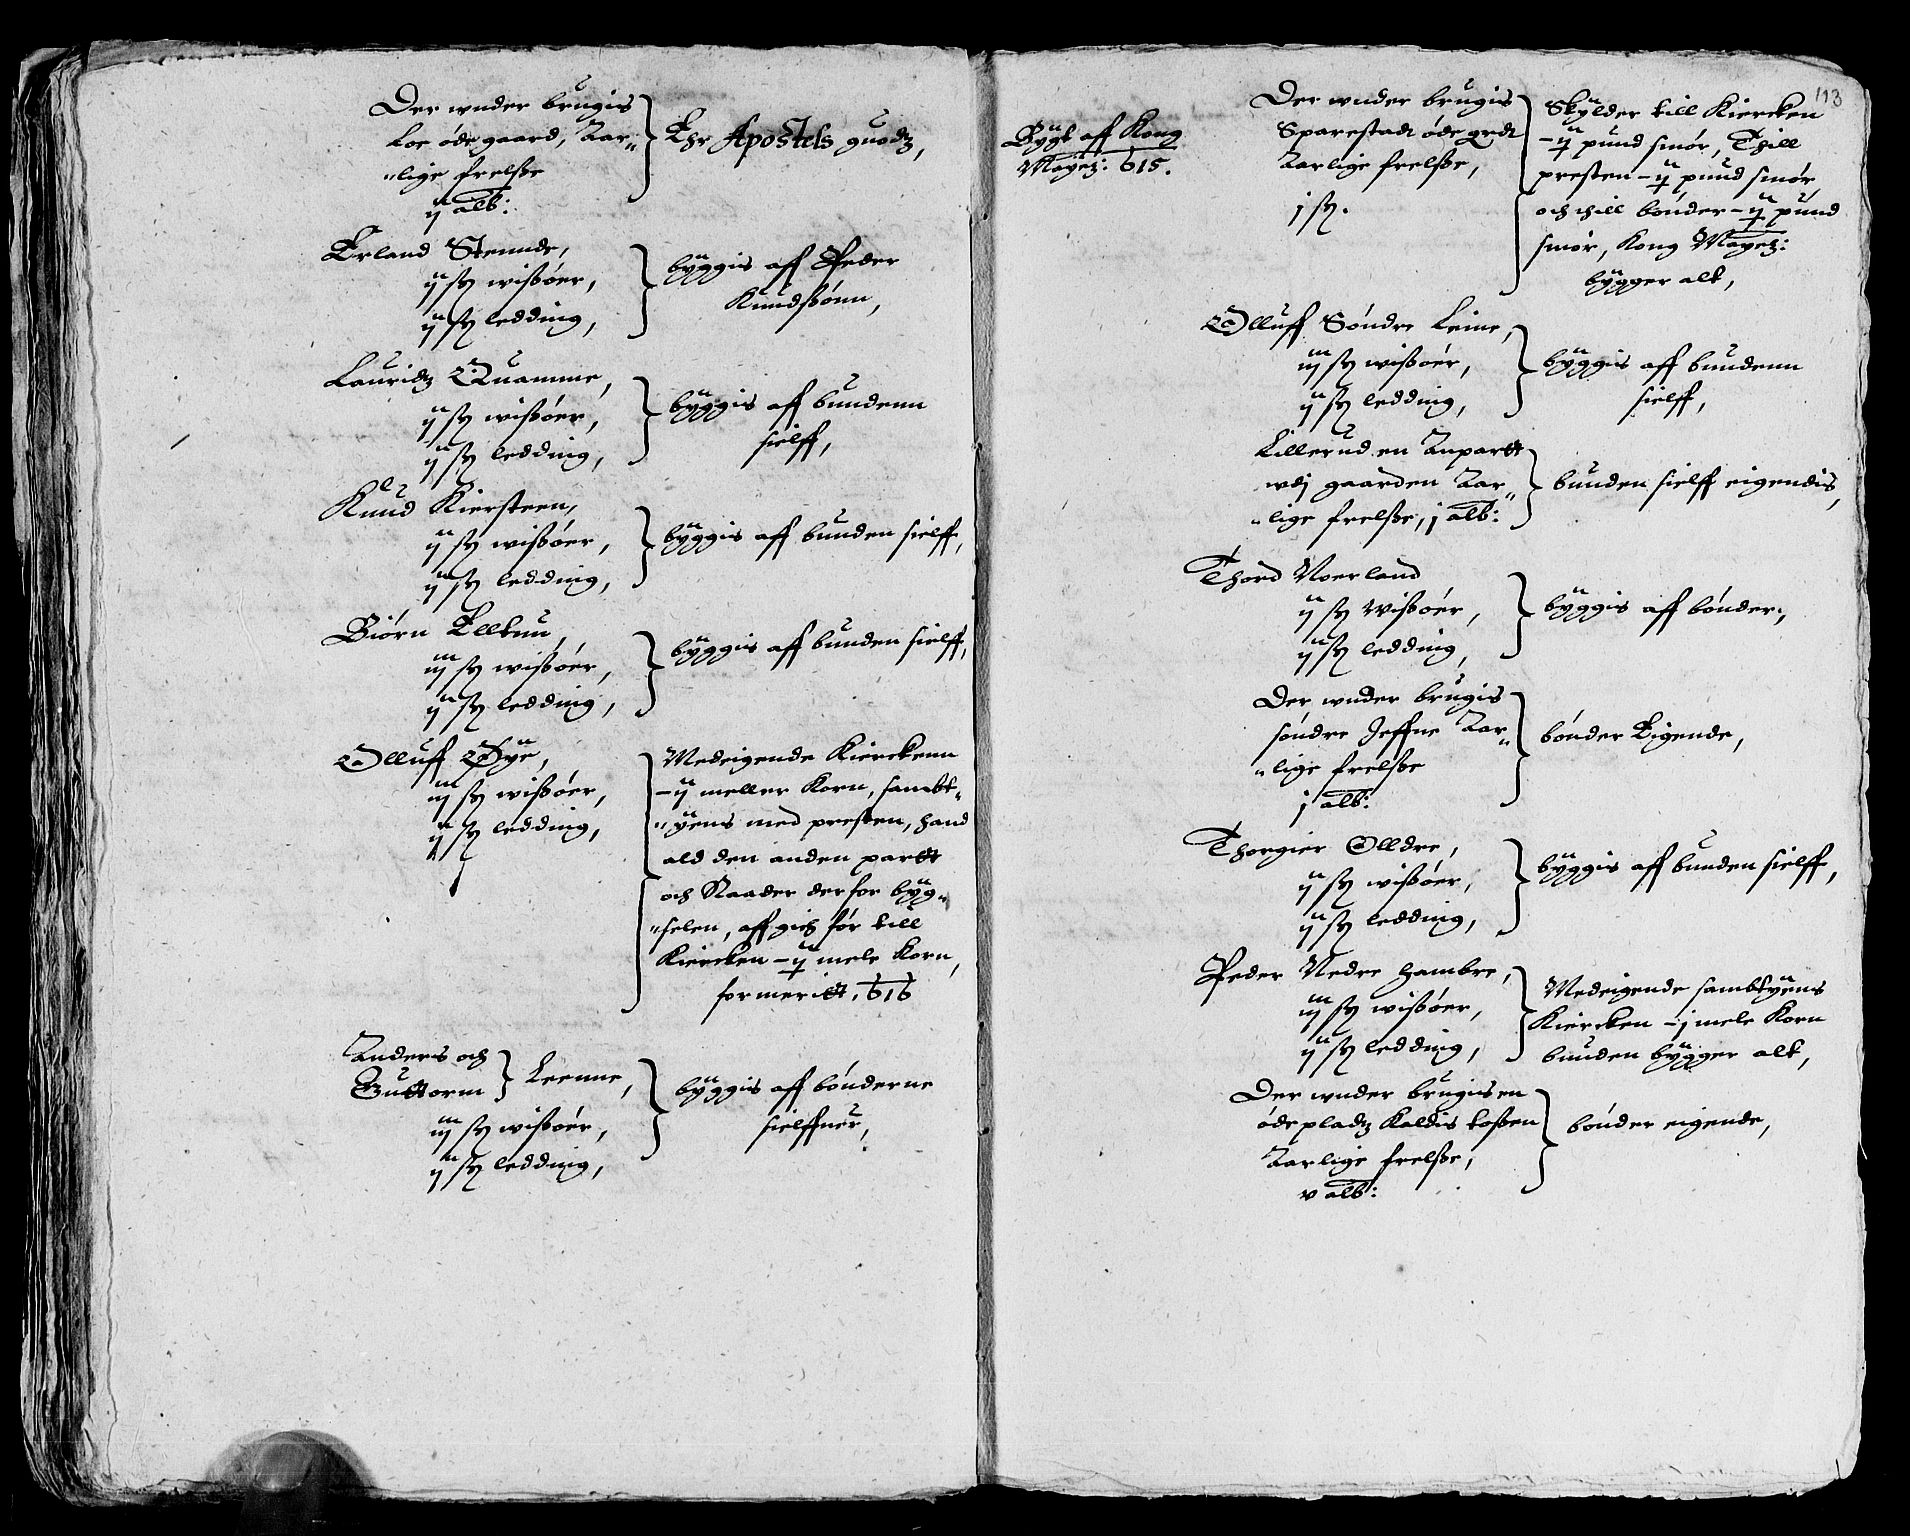 Der wnder brugis
Loe øde gaard, Aar„
„lige frelsse
ij alb:
Ehr Apostels guodz,
Erland Stennde,
ij sz wissøer,
ij sz ledding,
byggis aff Peder
Knudssønn,
Lauridz Quamme,
ij sz wissøer,
ij sz ledding,
byggis aff bundenn
sielff,
Knud Kiersteen,
ij sz wissøer,
ij sz ledding,
byggis aff bunden sielff,
Biørn Elltun,
iij sz wissøer,
ij sz ledding,
byggis aff bunden sielff,
Olluff Øye,
iij sz wissøer,
ij sz ledding,
Medeigende Kierckenn
- ij meller Korn, sambt„
„yens med presten, hand
ald den anden partt
och Raader derfor byg„
„selen, aff gich før till
Kiercken - ij mele Korn,
formeritt. 616
Anders och
Guttorm
Leenne,
iij sz wissøer,
ij sz ledding,
byggis aff bønderne
sielffuer,
113
Bygt aff Kong
Mayez: 615.
Der wnder brugis
Sparestadt øde grdt
Aarlige frelsse,
j sz.
Skylder till Kiercken
- ij pund smør, Thill
presten - ij pund smør
och thill bønder - ij pund
smør, Kong Mayez:
bygger alt,
Olluff Søndre Leine,
iij sz wissøer,
ij sz ledding,
byggis aff bundenn
sielff,
Lillerud en Anpartt
wdj gaarden Aar„
„lige frelsse, j alb:
bunden sielff eigendis,
Thord Noerland
ij sz wissøer,
ij sz ledding,
byggis aff bønder,
Der wnder brugis
søndre Jeffne Aar„
„lige frelsse
j alb:
bønder Eigende,
Thorgier Olldre,
ij sz wissøer,
ij sz ledding,
byggis aff bunden sielff,
Peder Nedre hambre,
iij sz wissøer,
ij sz ledding,
Medeigende sambtyens
Kiercken - j mele Korn
bunden bygger alt,
Der wnder brugis en
øde pladz Kaldis tossen
Aarlige frelsse,
v alb:
bønder eigende,